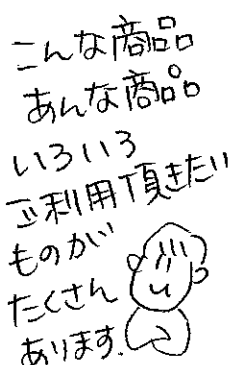 こんな商品
あんな商品
いろいろ
ご利用頂きたい
ものが
たくさん
あります.